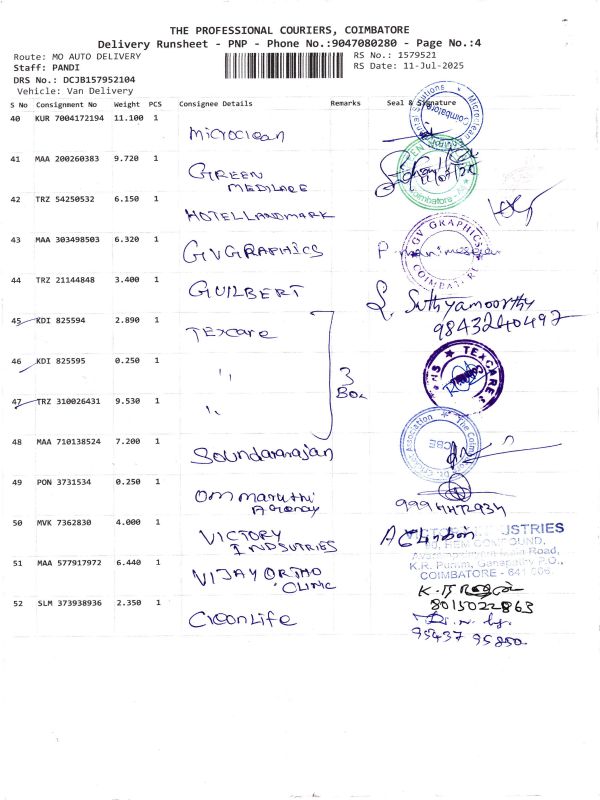 THE PROFESSIONAL COURIERS, COIMBATORE
Delivery Runsheet - PNP - Phone No.:9047080280 - Page No.:4
Route: MO AUTO DELIVERY
RS No.: 1579521
Staff: PANDI
RS Date: 11-Jul-2025
DRS No.: DCJB157952104
Vehicle: Van Delivery
S No Consignment No Weight PCS Consignee Details Remarks Seal & Signature
40 KUR 7004172194 11.100 1 Microclean
Microclean
Coimbatore
41 MAA 200260383 9.720 1 GREEN
MEDILACE
42 TRZ 54250532 6.150 1 HOTELLANDMARK
43 MAA 303498503 6.320 1 GVGRAPHICS
GV GRAPHICS
44 TRZ 21144848 3.400 1 GUILBERT
S. Sathyamoorthy
9843240497
45 KDI 825594 2.890 1 Texcare
46 KDI 825595 0.250 1 "
3
Box
TEXCARES
47 TRZ 310026431 9.530 1 "
48 MAA 710138524 7.200 1 Soundararajan
49 PON 3731534 0.250 1 Om maruthi
Agency
50 MVK 7362830 4.000 1 VICTORY
INDSUTRIES
INDUSTRIES
Road,
COIMBATORE - 641 006.
51 MAA 577917972 6.440 1 VIJAY ORTHO
CLINIC
8015022863
52 SLM 373938936 2.350 1 CleonLife
95437 95850